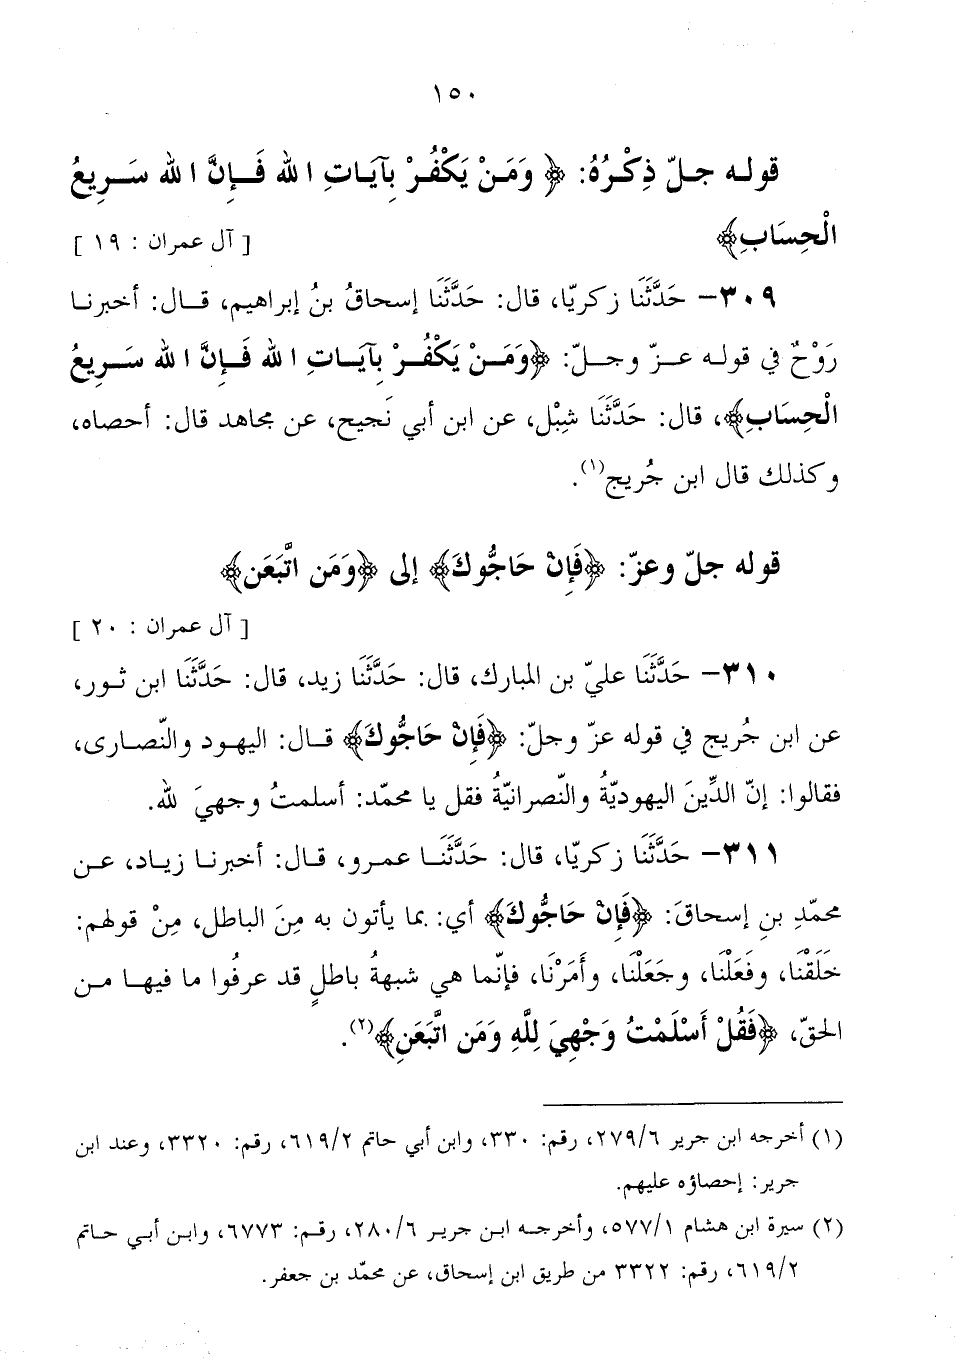 ١٥٠
قوله جلّ ذِكْرُهُ: ﴿وَمَنْ يَكْفُرْ بِآيَاتِ الله فَإِنَّ الله سَرِيعُ
الْحِسَابِ﴾
[ آل عمران : ١٩ ]
٣٠٩– حَدَّثَنَا زكريّا، قال: حَدَّثَنَا إسحاقُ بنُ إبراهيم، قال: أخبرنا
رَوْحٌ في قوله عزّ وجلّ: ﴿وَمَنْ يَكْفُرْ بِآيَاتِ الله فَإِنَّ الله سَرِيعُ
الْحِسَابِ﴾، قال: حَدَّثَنَا شِبْل، عن ابن أبي نَجيح، عن مجاهد قال: أحصاه،
وكذلك قال ابن جُريج(١).
قوله جلّ وعزّ: ﴿فَإِنْ حَاجُّوكَ﴾ إلى ﴿وَمَن اتَّبَعَن﴾
[ آل عمران : ٢٠ ]
٣١٠– حَدَّثَنَا عليّ بن المبارك، قال: حَدَّثَنَا زيد، قال: حَدَّثَنَا ابن ثور،
عن ابن جُريج في قوله عزّ وجلّ: ﴿فَإِنْ حَاجُّوكَ﴾ قال: اليهود والنّصارى،
فقالوا: إنّ الدِّينَ اليهوديّةُ والنّصرانيّةُ فقل يا محمّد: أسلمتُ وجهيَ لله.
٣١١– حَدَّثَنَا زكريّا، قال: حَدَّثَنَا عمرو، قال: أخبرنا زياد، عن
محمّدِ بنِ إسحاقَ: ﴿فَإِنْ حَاجُّوكَ﴾ أي: بما يأتون به مِنَ الباطل، مِنْ قولهم:
خَلَقْنَا، وفَعَلْنَا، وجَعَلْنَا، وأَمَرْنَا، فإنّما هي شبهةُ باطلٍ قد عرفُوا ما فيها من
الحقّ، ﴿فَقُلْ أَسْلَمْتُ وَجْهِيَ لِلَّهِ وَمَن اتَّبَعَنِ﴾(٢).
(١) أخرجه ابن جرير ٢٧٩/٦، رقم: ٣٣٠، وابن أبي حاتم ٦١٩/٢، رقم: ٣٣٢٠، وعند ابن
جرير: إحصاؤه عليهم.
(٢) سيرة ابن هشام ٥٧٧/١، وأخرجه ابن جرير ٢٨٠/٦، رقم: ٦٧٧٣، وابن أبي حاتم
٦١٩/٢، رقم: ٣٣٢٢ من طريق ابن إسحاق، عن محمّد بن جعفر.